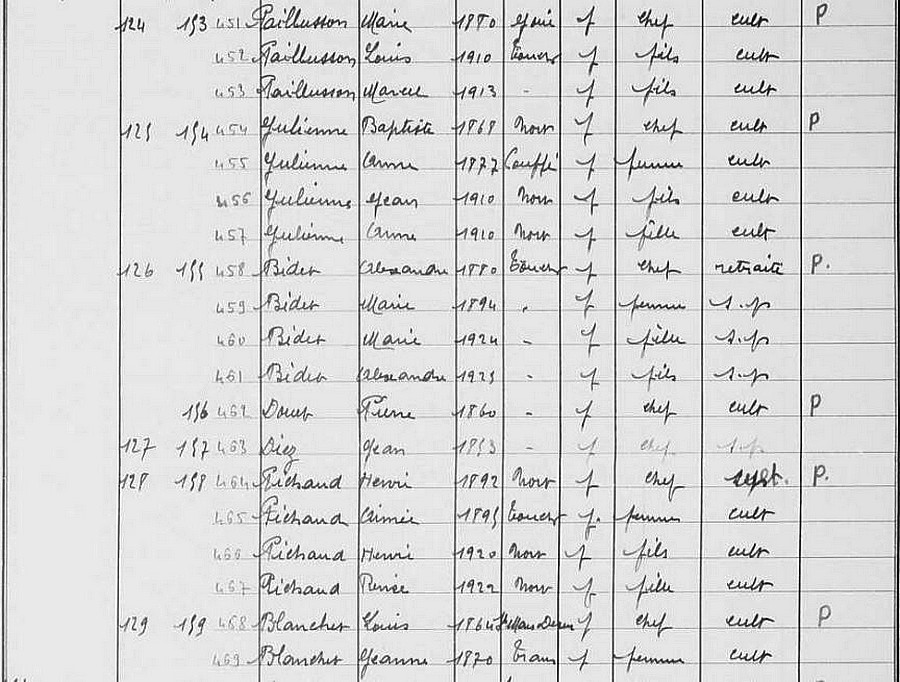 124 153 451 Paillusson Marie 1880 Joué f chef cult P
452 Paillusson Louis 1910 Touches f fils cult
453 Paillusson Marcel 1913 - f fils cult
125 154 454 Julienne Baptiste 1868 Nort f chef cult P
455 Julienne Anna 1877 Couffé f femme cult
456 Julienne Jean 1910 Nort f fils cult
457 Julienne Anna 1910 Nort f fille cult
126 155 458 Bidet Alexandre 1880 Touches f chef retraité P.
459 Bidet Marie 1894 - f femme s.p
460 Bidet Marie 1924 - f fille s.p
461 Bidet Alexandre 1925 - f fils s.p
156 462 Douet Pierre 1860 - f chef cult P
127 157 463 Diez Jean 1853 - f chef s.p
128 158 464 Pichaud Henri 1892 Nort f chef P.
465 Pichaud Aimée 1895 Touches f. femme cult
466 Pichaud Henri 1920 Nort f fils cult
467 Pichaud Renée 1922 Nort f fille cult
129 159 468 Blanchet Louis 1864 f chef cult P
469 Blanchet Jeanne 1870 Trans f femme cult